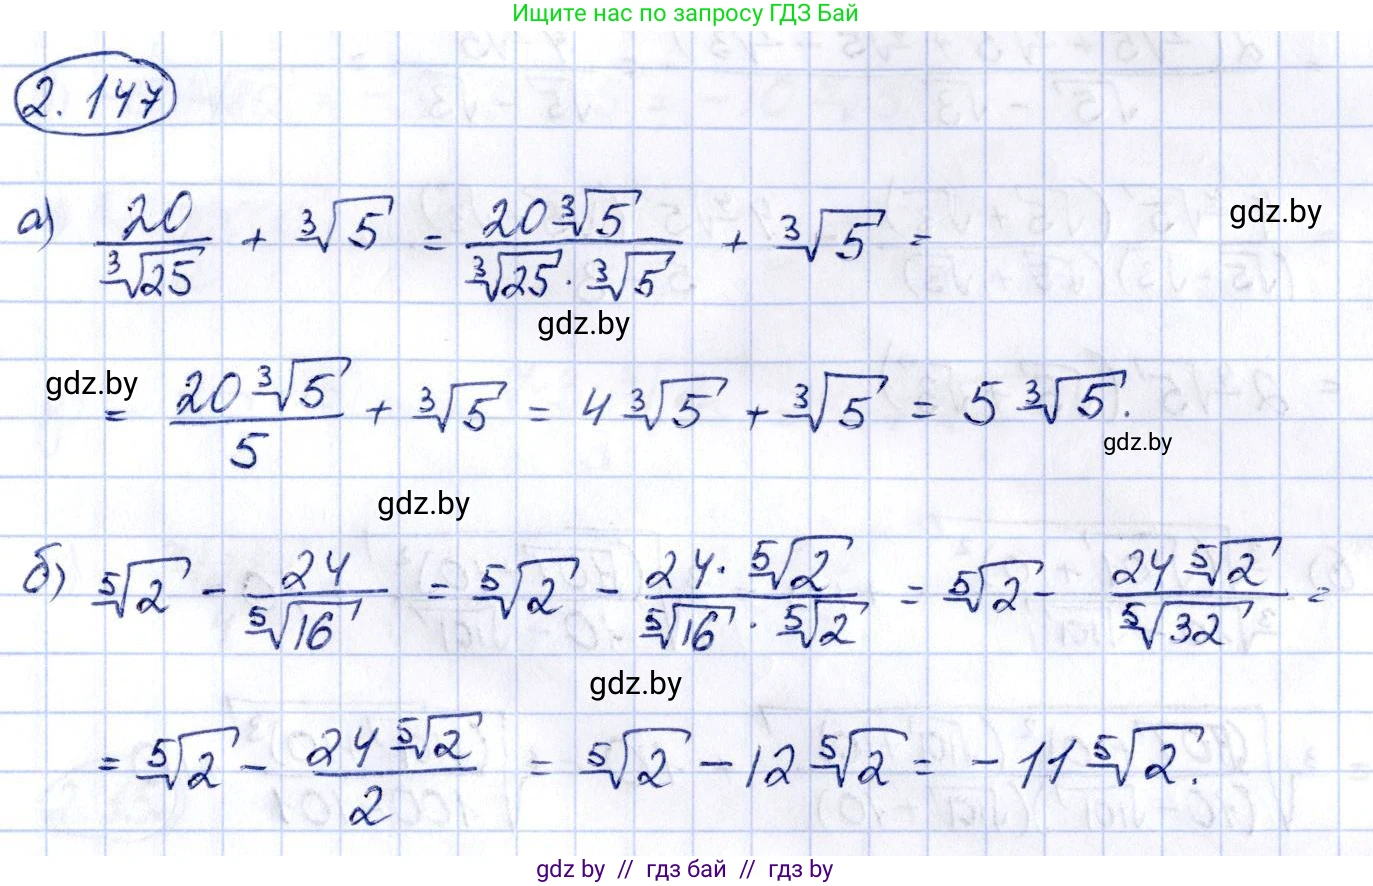 Ищите нас по запросу ГДЗ Бай
2.147
а) 20/∛25 + ∛5 = 20∛5/(∛25 · ∛5) + ∛5 =
gdz.by
gdz.by
gdz.by
= 20∛5/5 + ∛5 = 4∛5 + ∛5 = 5∛5.
gdz.by
gdz.by
б) ⁵√2 - 24/⁵√16 = ⁵√2 - 24·⁵√2/(⁵√16 · ⁵√2) = ⁵√2 - 24⁵√2/⁵√32 =
gdz.by
= ⁵√2 - 24⁵√2/2 = ⁵√2 - 12⁵√2 = -11⁵√2.
gdz by // гдз бай // гдз by